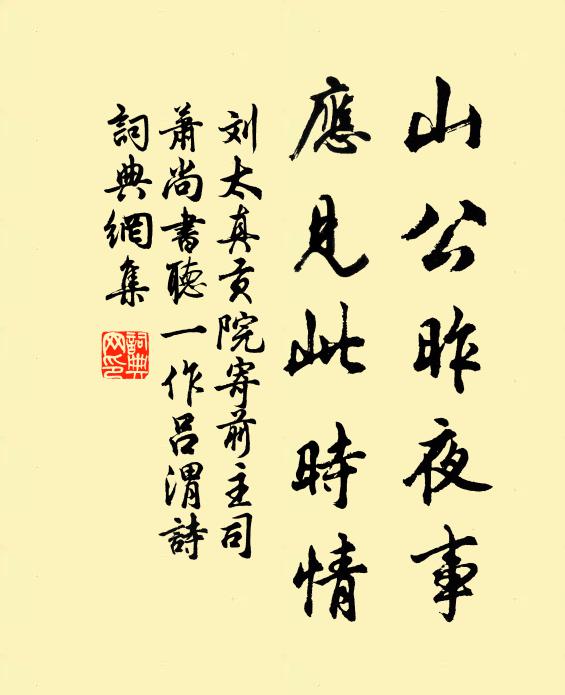 山公昨夜事
應見此時情
刘太真贡院寄前主司
萧尚書聽一作吕渭詩
詞典網集
詞典網印